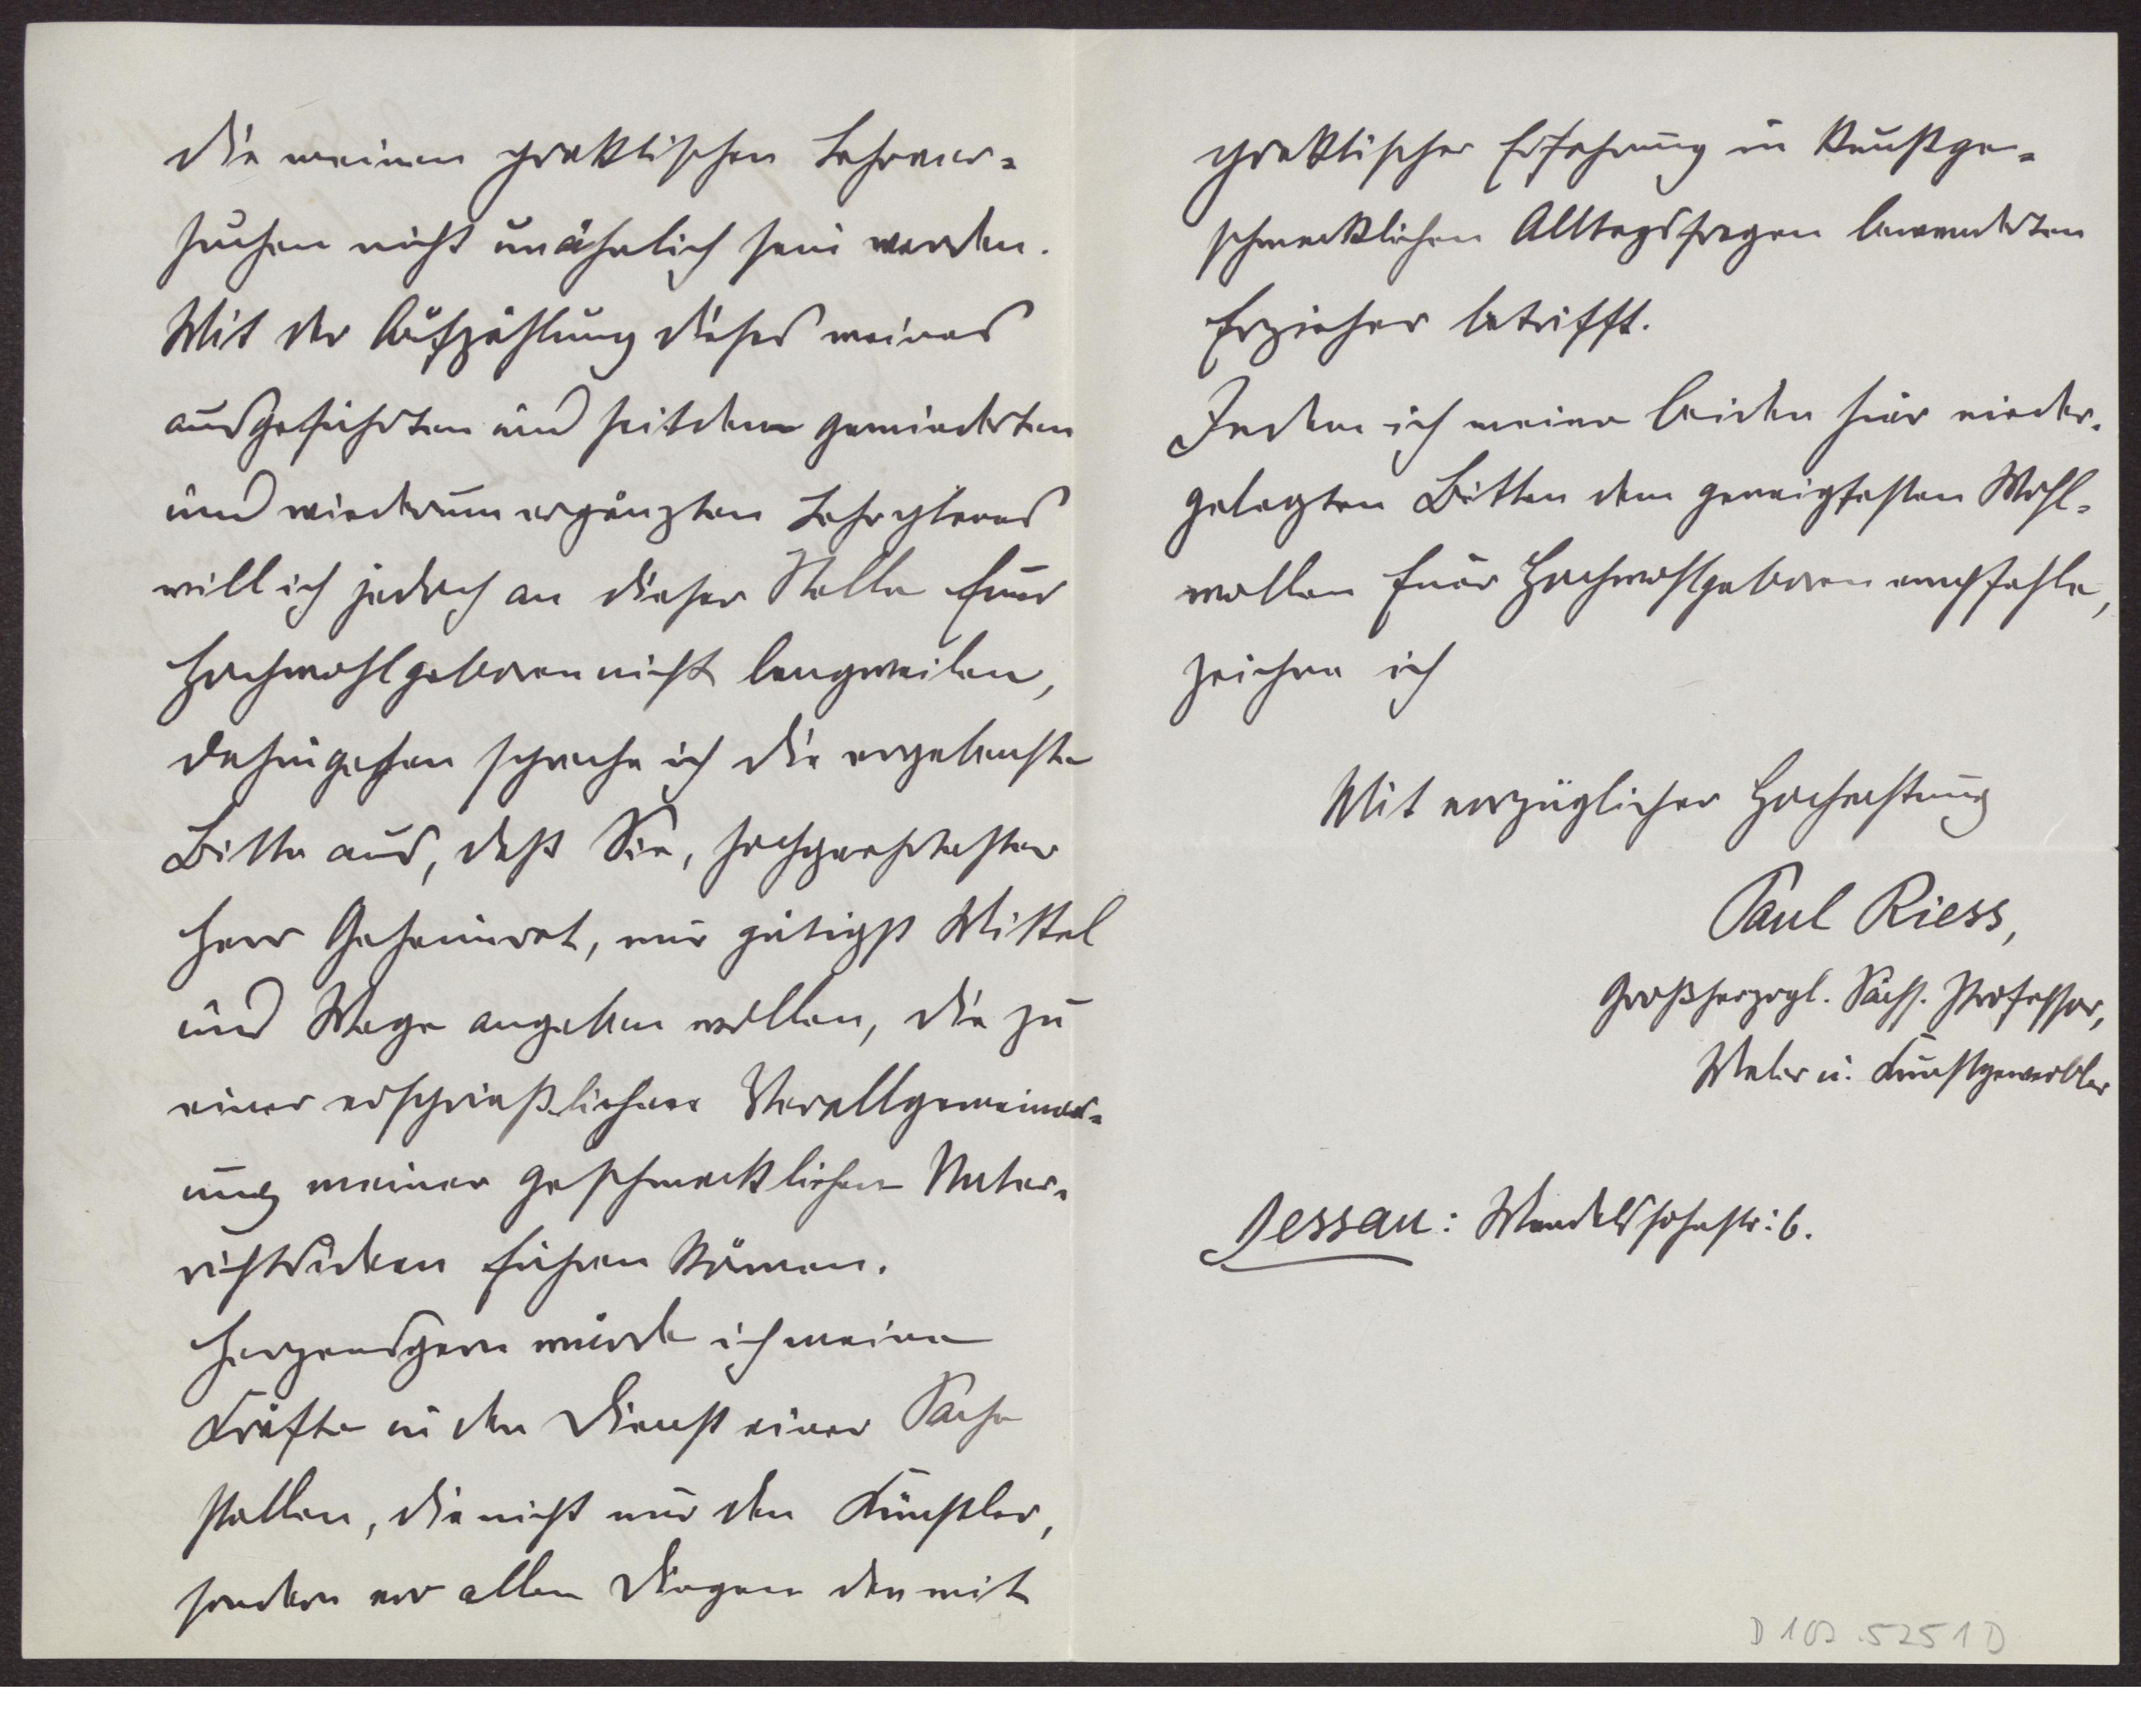 die meinen praktischen Lehrver-
suchen nicht unähnlich sein werden.
Mit der Aufzählung dieses meines
ausgeführten und seitdem geminderten
und wiederum ergänzten Lehrplanes
will ich jedoch an dieser Stelle Euer
Hochwohlgeboren nicht langweilen,
dahingehen spreche ich die ergebenste
Bitte aus, daß Sie, hochgeehrtester
Herr Geheimrat, mir gütigst Mittel
und Wege angeben wollen, die zu
einer ersprießlichen Verallgemeiner-
ung meiner geschmacklichen Unter-
richtsideen führen können.
Herzensgern würde ich meine
Kräfte in den Dienst einer Sache
stellen, die nicht nur den Künstler,
sondern vor allen Dingen den mit
praktischer Erfahrung in Kunstge-
schmacklichen Alltagsfragen bewanderten
Erzieher betrifft.
Indem ich meine beiden hier nieder-
gelegten Bitten dem geneigtesten Wohl-
wollen Euer Hochwohlgeboren empfehle,
zeichne ich
Mit vorzüglicher Hochachtung
Paul Riess,
Großherzogl. Sächs. Professor,
Maler u. Kunstgewerbler
Dessau: Mendelssohnstr: 6.
D 102.5251 D